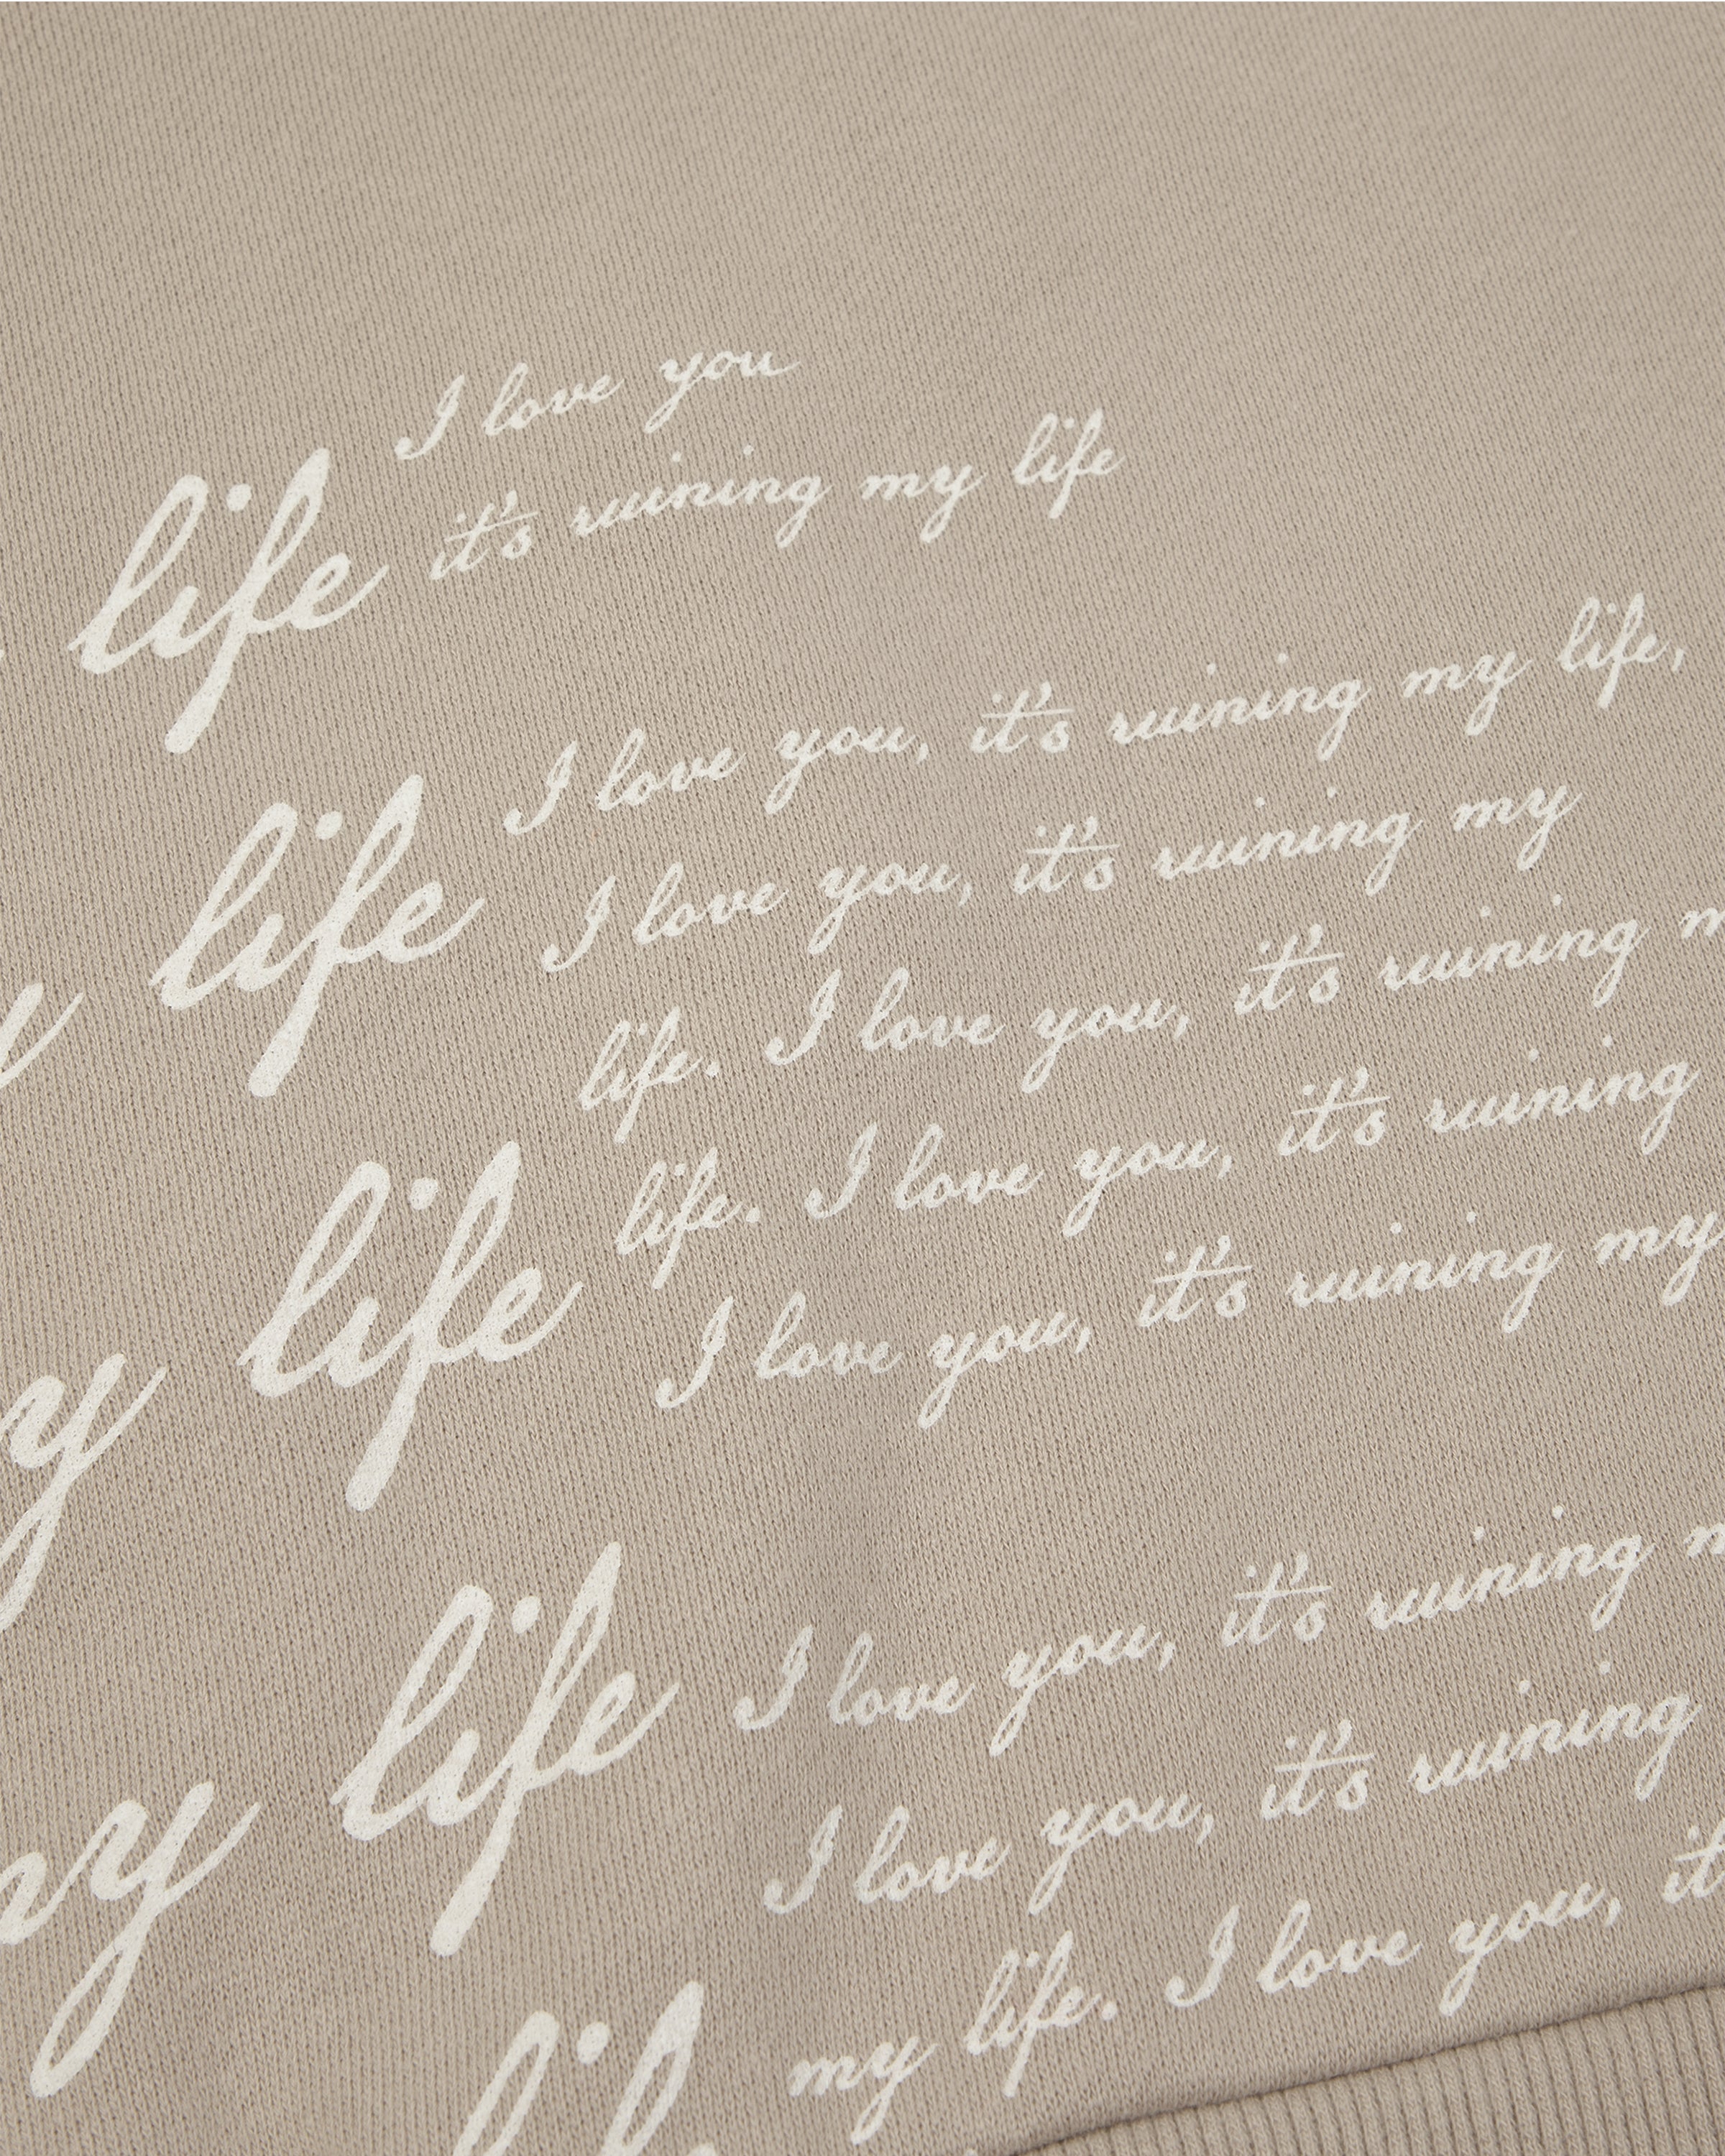 I love you
it's ruining my life
life
I love you, it's ruining my life,
I love you, it's ruining my
life
life. I love you, it's ruining
life. I love you, it's ruining
I love you, it's ruining my
life
y
I love you, it's ruining
life
I love you, it's ruining
my life. I love you,
my